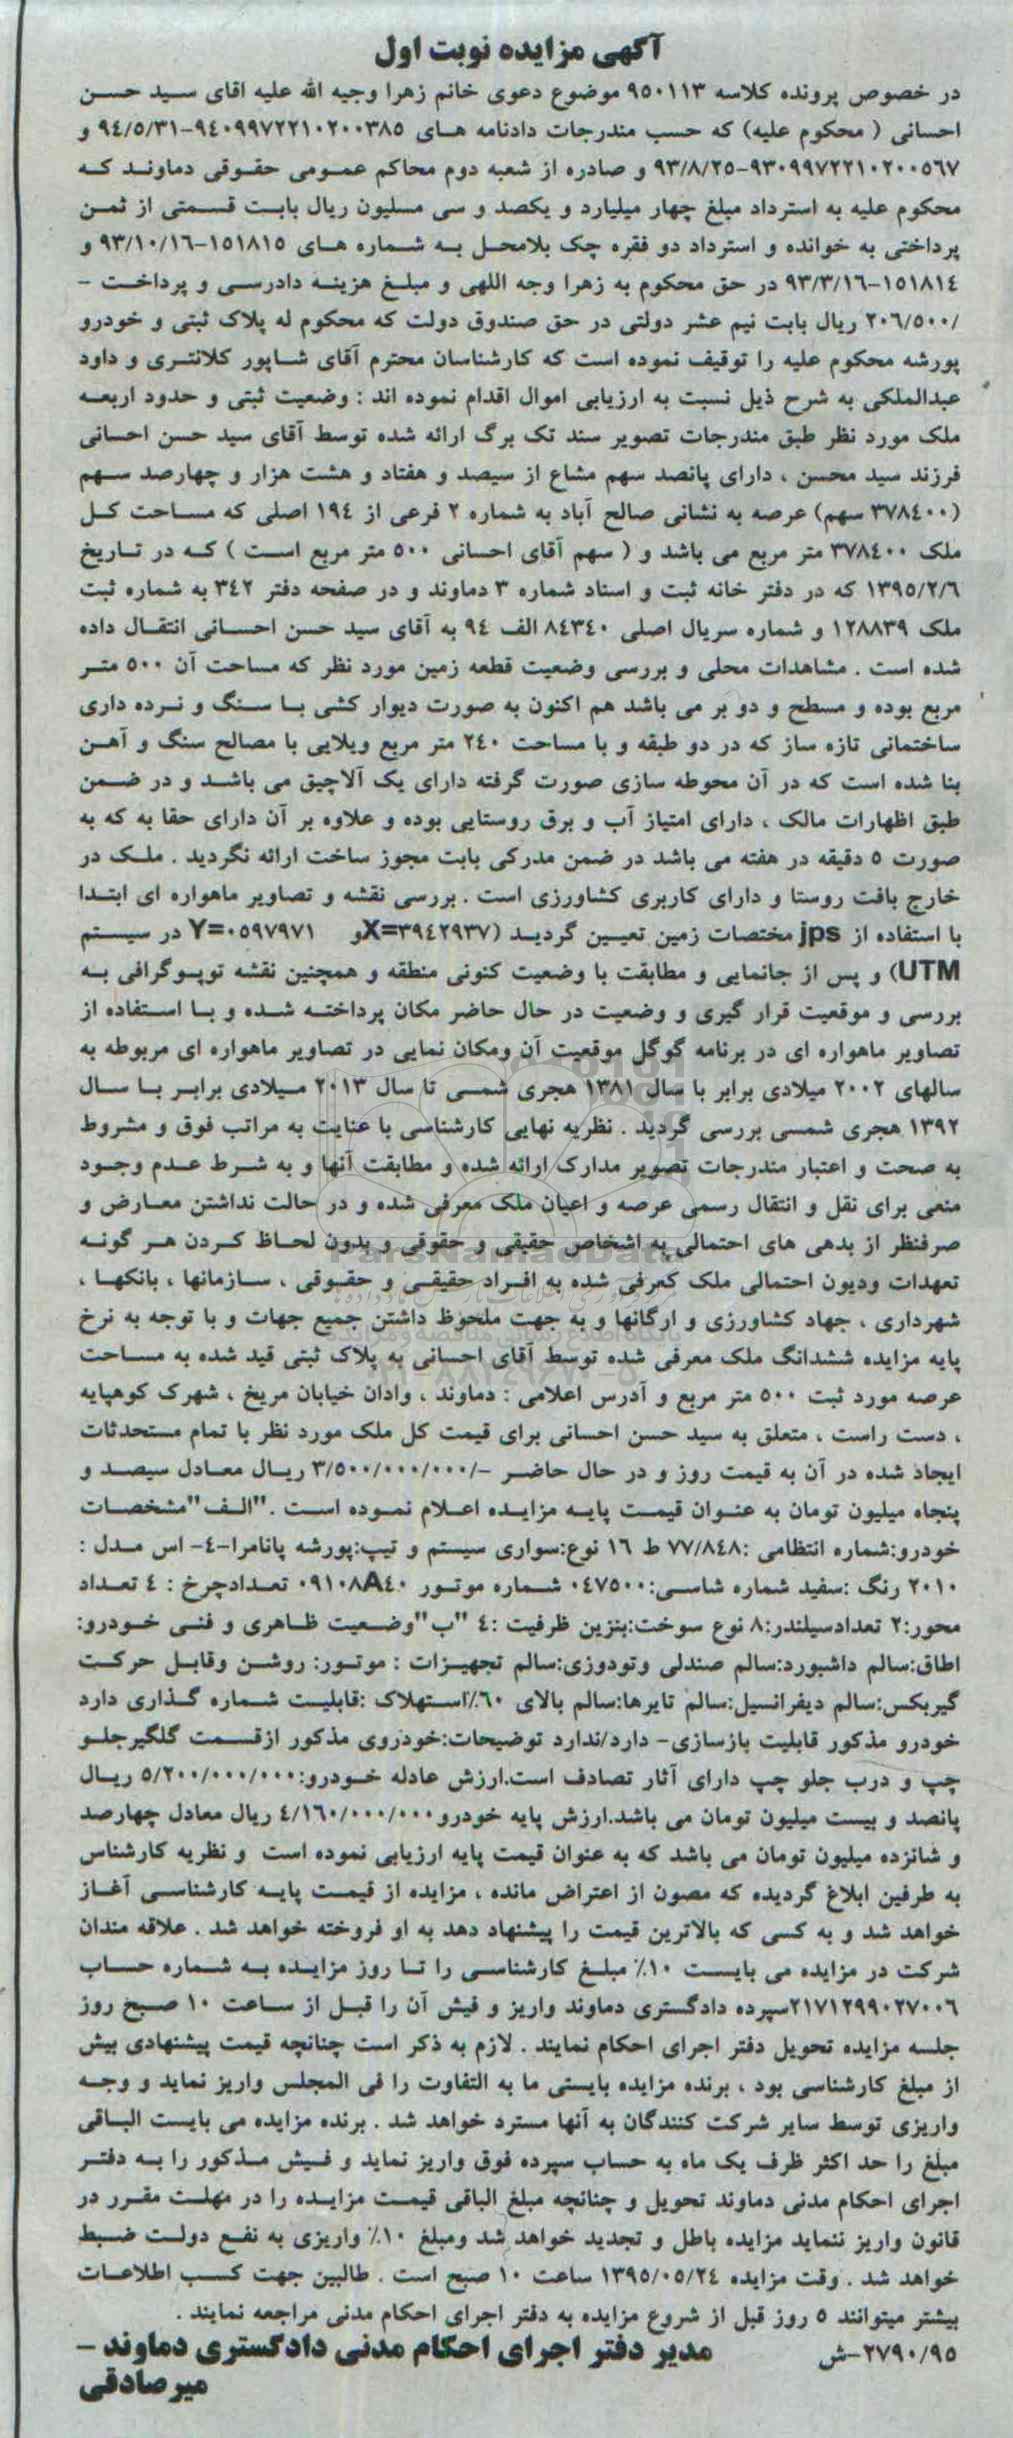 آگهی مزایده نوبت اول
در خصوص پرونده کلاسه ۹۵۰۱۱۳ موضوع دعوی خانم زهرا وجیه الله علیه اقای سید حسن
احسانی ( محکوم علیه) که حسب مندرجات دادنامه های ۹۴۰۹۹۷۲۲۱۰۲۰۰۳۸۵-۹۴/۵/۳۱ و
۹۳۰۹۹۷۲۲۱۰۲۰۰۵۶۷-۹۳/۸/۲۵ و صادره از شعبه دوم محاکم عمومی حقوقی دماوند که
محکوم علیه به استرداد مبلغ چهار میلیارد و یکصد و سی مسلیون ریال بابت قسمتی از ثمن
پرداختی به خوانده و استرداد دو فقره چک بلامحل به شماره های ۱۵۱۸۱۵-۹۳/۱۰/۱۶ و
۱۵۱۸۱٤-۹۳/۳/۱۶ در حق محکوم به زهرا وجه اللهی و مبلغ هزینه دادرسی و پرداخت -
/۲۰۶/۵۰۰ ریال بابت نیم عشر دولتی در حق صندوق دولت که محکوم له پلاک ثبتی و خودرو
پورشه محکوم علیه را توقیف نموده است که کارشناسان محترم آقای شاپور کلانتری و داود
عبدالملکی به شرح ذیل نسبت به ارزیابی اموال اقدام نموده اند : وضعیت ثبتی و حدود اربعه
ملک مورد نظر طبق مندرجات تصویر سند تک برگ ارائه شده توسط آقای سید حسن احسانی
فرزند سید محسن ، دارای پانصد سهم مشاع از سیصد و هفتاد و هشت هزار و چهارصد سهم
(۳۷۸٤۰۰ سهم) عرصه به نشانی صالح آباد به شماره ۲ فرعی از ۱۹٤ اصلی که مساحت کل
ملک ۳۷۸٤۰۰ متر مربع می باشد و ( سهم آقای احسانی ۵۰۰ متر مربع است ) که در تاریخ
۱۳۹۵/۲/۶ که در دفتر خانه ثبت و اسناد شماره ۳ دماوند و در صفحه دفتر ۳٤۲ به شماره ثبت
ملک ۱۲۸۸۳۹ و شماره سریال اصلی ۸٤۳٤۰ الف ۹٤ به آقای سید حسن احسانی انتقال داده
شده است . مشاهدات محلی و بررسی وضعیت قطعه زمین مورد نظر که مساحت آن ۵۰۰ متر
مربع بوده و مسطح و دو بر می باشد هم اکنون به صورت دیوار کشی با سنگ و نرده داری
ساختمانی تازه ساز که در دو طبقه و با مساحت ۲٤۰ متر مربع ویلایی با مصالح سنگ و آهن
بنا شده است که در آن محوطه سازی صورت گرفته دارای یک آلاچیق می باشد و در ضمن
طبق اظهارات مالک ، دارای امتیاز آب و برق روستایی بوده و علاوه بر آن دارای حقا به که به
صورت ۵ دقیقه در هفته می باشد در ضمن مدرکی بابت مجوز ساخت ارائه نگردید . ملک در
خارج بافت روستا و دارای کاربری کشاورزی است . بررسی نقشه و تصاویر ماهواره ای ابتدا
با استفاده از jps مختصات زمین تعیین گردید (X=۳۹٤۲۹۳۷و Y=۰۵۹۷۹۷۱ در سیستم
UTM) و پس از جانمایی و مطابقت با وضعیت کنونی منطقه و همچنین نقشه توپوگرافی به
بررسی و موقعیت قرار گیری و وضعیت در حال حاضر مکان پرداخته شده و با استفاده از
تصاویر ماهواره ای در برنامه گوگل موقعیت آن ومکان نمایی در تصاویر ماهواره ای مربوطه به
سالهای ۲۰۰۲ میلادی برابر با سال ۱۳۸۱ هجری شمسی تا سال ۲۰۱۳ میلادی برابر با سال
۱۳۹۲ هجری شمسی بررسی گردید . نظریه نهایی کارشناسی با عنایت به مراتب فوق و مشروط
به صحت و اعتبار مندرجات تصویر مدارک ارائه شده و مطابقت آنها و به شرط عدم وجود
منعی برای نقل و انتقال رسمی عرصه و اعیان ملک معرفی شده و در حالت نداشتن معارض و
صرفنظر از بدهی های احتمالی به اشخاص حقیقی و حقوقی و بدون لحاظ کردن هر گونه
تعهدات ودیون احتمالی ملک کعرفی شده به افراد حقیقی و حقوقی ، سازمانها ، بانکها ،
شهرداری ، جهاد کشاورزی و ارگانها و به جهت ملحوظ داشتن جمیع جهات و با توجه به نرخ
پایه مزایده ششدانگ ملک معرفی شده توسط آقای احسانی به پلاک ثبتی قید شده به مساحت
عرصه مورد ثبت ۵۰۰ متر مربع و آدرس اعلامی : دماوند ، وادان خیابان مریخ ، شهرک کوهپایه
، دست راست ، متعلق به سید حسن احسانی برای قیمت کل ملک مورد نظر با تمام مستحدثات
ایجاد شده در آن به قیمت روز و در حال حاضر -/۳/۵۰۰/۰۰۰/۰۰۰ ریال معادل سیصد و
پنجاه میلیون تومان به عنوان قیمت پایه مزایده اعلام نموده است ."الف"مشخصات
خودرو:شماره انتظامی :۷۷/۸٤۸ ط ۱۶ نوع:سواری سیستم و تیپ:پورشه پانامرا-٤- اس مدل :
۲۰۱۰ رنگ :سفید شماره شاسی:۰٤۷۵۰۰ شماره موتور ۰۹۱۰۸A٤۰ تعدادچرخ : ٤ تعداد
محور:۲ تعدادسیلندر:۸ نوع سوخت:بنزین ظرفیت :٤ "ب"وضعیت ظاهری و فنی خودرو:
اطاق:سالم داشبورد:سالم صندلی وتودوزی:سالم تجهیزات : موتور: روشن وقابل حرکت
گیربکس:سالم دیفرانسیل:سالم تایرها:سالم بالای ۶۰٪استهلاک :قابلیت شماره گذاری دارد
خودرو مذکور قابلیت بازسازی- دارد/ندارد توضیحات:خودروی مذکور ازقسمت گلگیرجلو
چپ و درب جلو چپ دارای آثار تصادف است.ارزش عادله خودرو:۵/۲۰۰/۰۰۰/۰۰۰ ریال
پانصد و بیست میلیون تومان می باشد.ارزش پایه خودرو ٤/۱۶۰/۰۰۰/۰۰۰ ریال معادل چهارصد
و شانزده میلیون تومان می باشد که به عنوان قیمت پایه ارزیابی نموده است و نظریه کارشناس
به طرفین ابلاغ گردیده که مصون از اعتراض مانده ، مزایده از قیمت پایه کارشناسی آغاز
خواهد شد و به کسی که بالاترین قیمت را پیشنهاد دهد به او فروخته خواهد شد . علاقه مندان
شرکت در مزایده می بایست ۱۰٪ مبلغ کارشناسی را تا روز مزایده به شماره حساب
۲۱۷۱۲۹۹۰۲۷۰۰۶سپرده دادگستری دماوند واریز و فیش آن را قبل از ساعت ۱۰ صبح روز
جلسه مزایده تحویل دفتر اجرای احکام نمایند . لازم به ذکر است چنانچه قیمت پیشنهادی بیش
از مبلغ کارشناسی بود ، برنده مزایده بایستی ما به التفاوت را فی المجلس واریز نماید و وجه
واریزی توسط سایر شرکت کنندگان به آنها مسترد خواهد شد . برنده مزایده می بایست الباقی
مبلغ را حد اکثر ظرف یک ماه به حساب سپرده فوق واریز نماید و فیش مذکور را به دفتر
اجرای احکام مدنی دماوند تحویل و چنانچه مبلغ الباقی قیمت مزایده را در مهلت مقرر در
قانون واریز ننماید مزایده باطل و تجدید خواهد شد ومبلغ ۱۰٪ واریزی به نفع دولت ضبط
خواهد شد . وقت مزایده ۱۳۹۵/۰۵/۲٤ ساعت ۱۰ صبح است . طالبین جهت کسب اطلاعات
بیشتر میتوانند ۵ روز قبل از شروع مزایده به دفتر اجرای احکام مدنی مراجعه نمایند .
۲۷۹۰/۹۵-ش مدیر دفتر اجرای احکام مدنی دادگستری دماوند -
میرصادقی